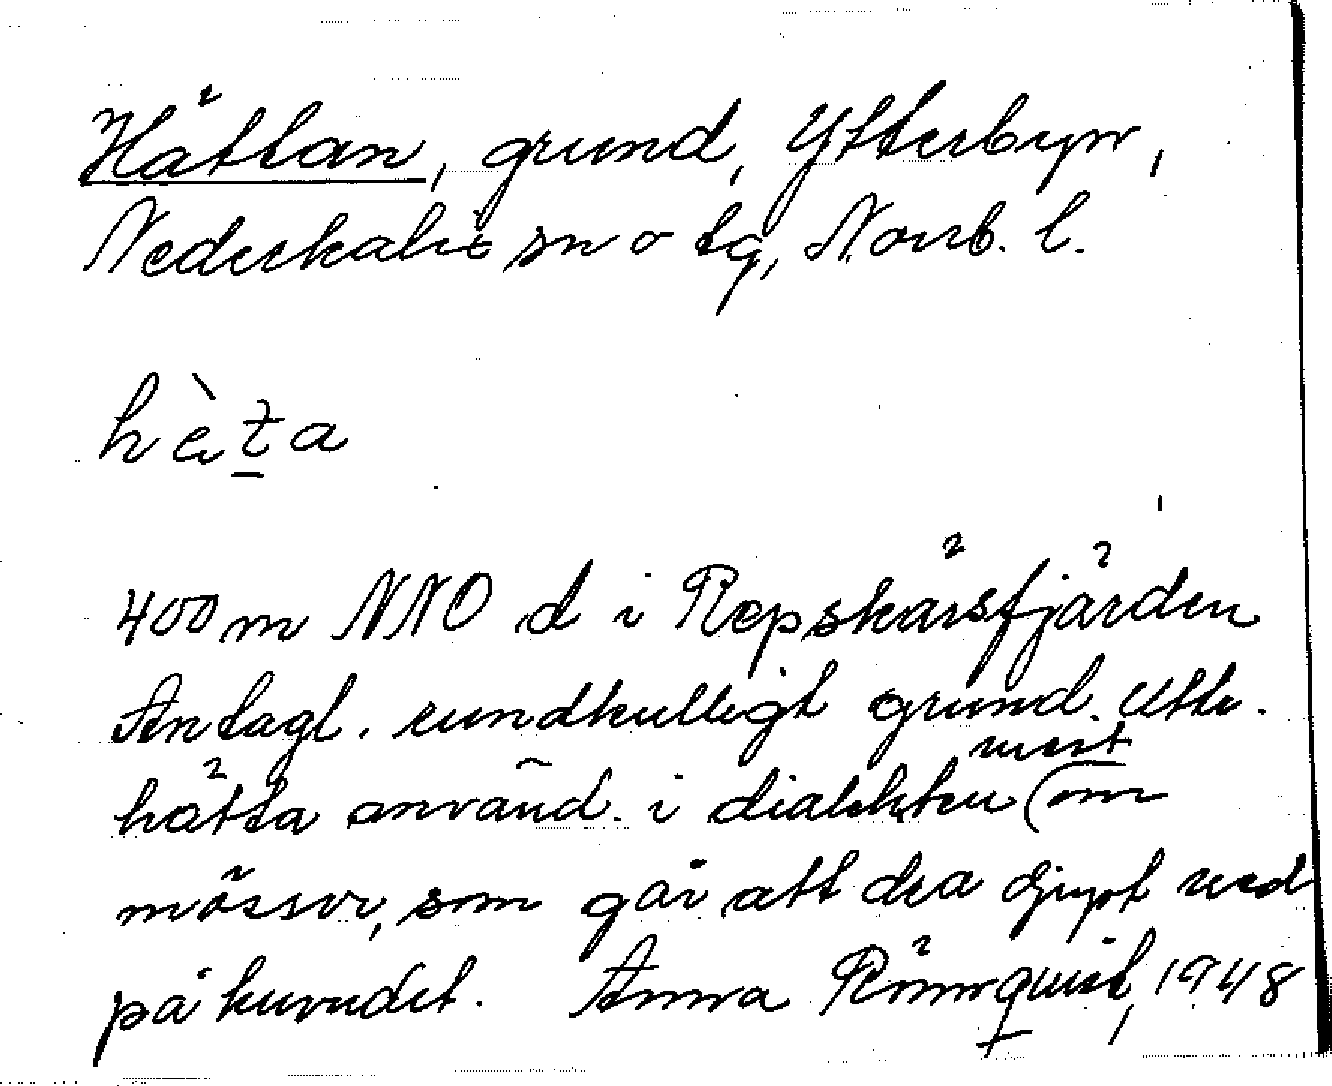 Hättan, grund, Ytterbyn,
Nederkalix sn o tg, Norrb. l.
hèta
400 m NNO d i Repskärsfjärden
Antagl. rundkulligt grund. Uttr.
hätta använd. i dialekten (mest om
mössor, som går att dra djupt ned
på huvudet. Anna Rönnquist, 1948